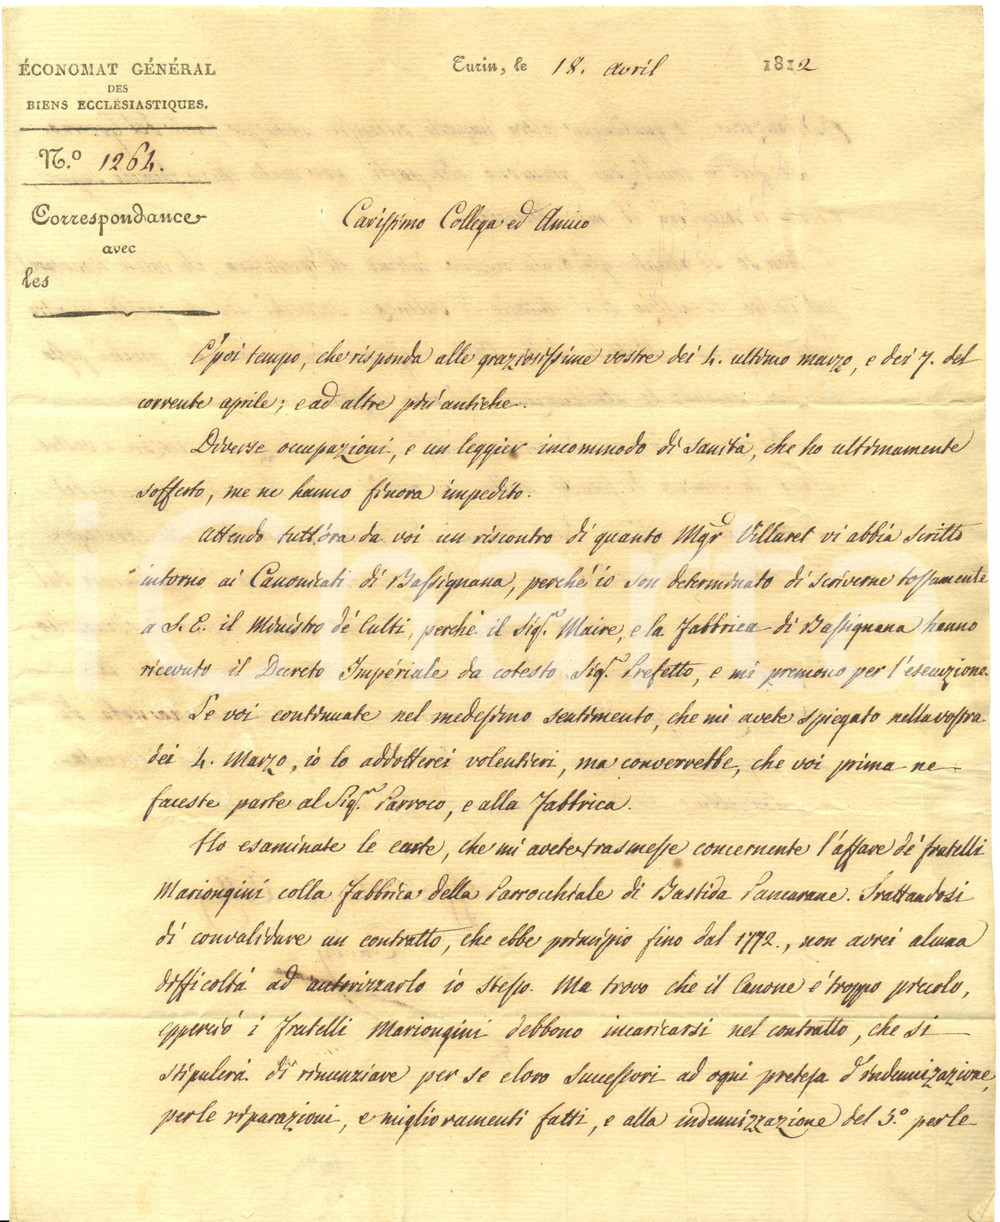 ÉCONOMAT GÉNÉRAL
DES
BIENS ECCLÉSIASTIQUES.
Turin, le 18. avril 1812
N.º 1264.
Correspondance
avec
les
Carissimo Collega ed Amico
E' poi tempo, che risponda alle graziosissime vostre dei 4. ultimo marzo, e dei 7. del
corrente aprile; e ad altre più antiche.
Diverse occupazioni, e un leggier incommodo di sanità, che ho ultimamente
sofferto, me ne hanno finora impedito.
Attendo tutt'ora da voi un riscontro di quanto Mgr Villaret vi abbia scritto
intorno ai Canonicati di Bassignana, perché io son determinato di scriverne tostamente
a S. E. il Ministro dé Culti, perché il Sigr. Maire, e la Fabbrica di Bassignana hanno
ricevuto il Decreto Impériale da cotesto Sigr. Prefetto, e mi premono per l'esecuzione.
Se voi continuate nel medesimo sentimento, che mi avete spiegato nella vostra
dei 4. Marzo, io lo addotterei volentieri, ma converrebbe, che voi prima ne
faceste parte al Sigr. Parroco, e alla Fabbrica.
Ho esaminate le carte, che mi avete trasmesse concernente l'affare dé fratelli
Mariongini colla Fabbrica della Parrocchiale di Bastida Pancarana. Trattandosi
di convalidare un contratto, che ebbe principio fino dal 1772., non avrei alcuna
difficoltà ad autorizzarlo io stesso. Ma trovo che il Canone é troppo piccolo,
epperciò i fratelli Mariongini debbono incaricarsi nel contratto, che si
stipulerà di rinunziare per se e loro successori ad ogni pretesa d'indennizazione
per le riparazioni, e miglioramenti fatti, e alla indennizzazione del 3.º per le